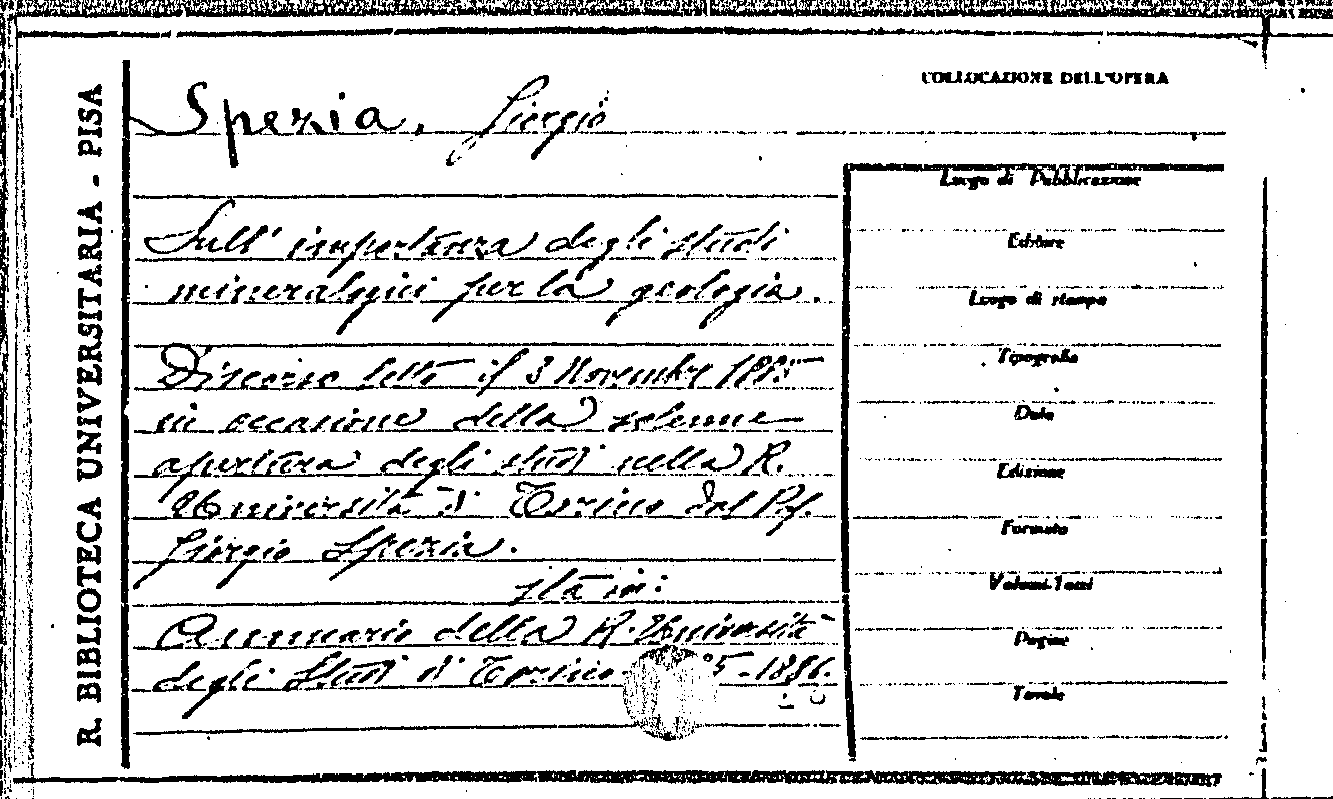 R. BIBLIOTECA UNIVERSITARIA - PISA
COLLOCAZIONE DELL'OPERA
Spezia, Giorgio
Sull' importanza degli studi
mineralogici per la geologia.
Discorso letto il 3 Novembre 1885
in occasione della solenne
apertura degli studi nella R.
Università di Torino dal Prof.
Giorgio Spezia.
sta in:
Annuario della R. Università
degli Studi di Torino - 5-1886.
Luogo di Pubblicazione
Editore
Luogo di stampa
Tipografia
Data
Edizione
Formato
Volumi-Tomi
Pagine
Tavole